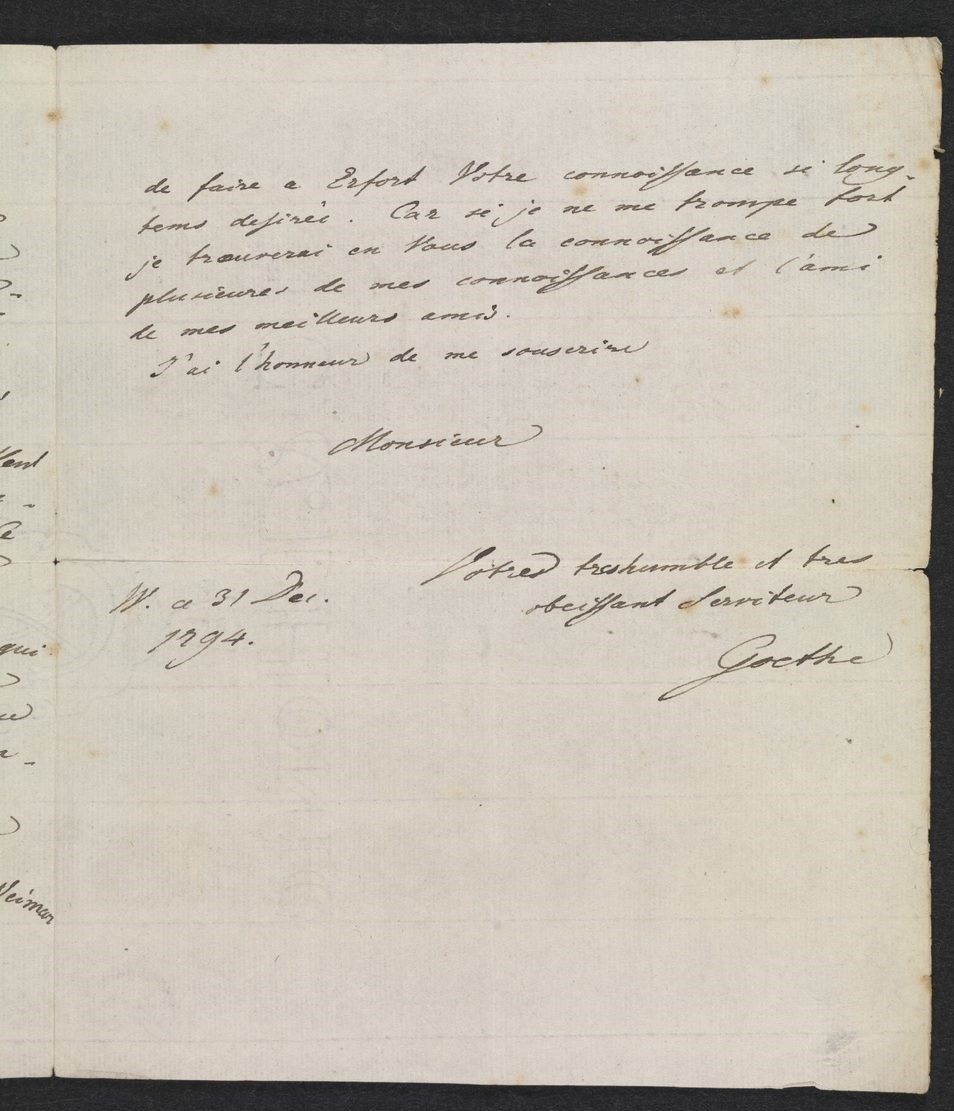 de faire a Erfort Votre connoissance si long-
tems desireé. Car si je ne me trompe fort
je trouverai en Vous la connoissance de
plusieures de mes connoissances et l'ami
de mes meilleurs amis.
J'ai l'honneur de me souscrire
Monsieur
Votre treshumble et tres
obeissant Serviteur
W. ce 31 Dec.
1794.
Goethe
qui
Weimar